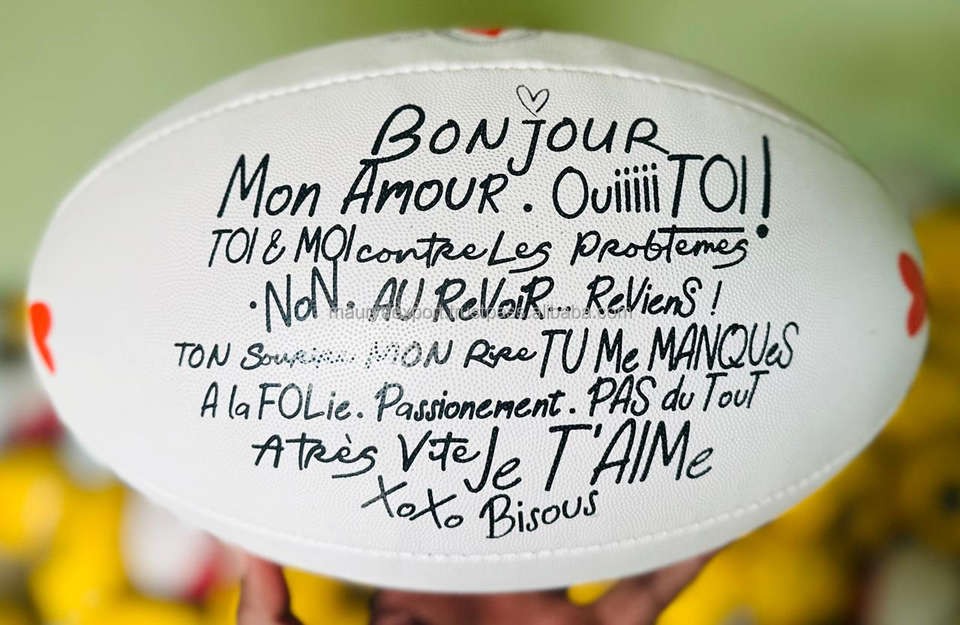 BONJOUR
Mon AMOUR. Ouiiiiii TOI!
TOI & MOI contre Les ProbTemes
·NoN. AU ReVoiR... ReViens!
maureexport.trustpass.alibaba.com
TON Sourire MON Rire TU Me MANQUeS
A la FOLie. Passionement. PAS du TouT
A très Vite Je T'AIMe
XoXo Bisous